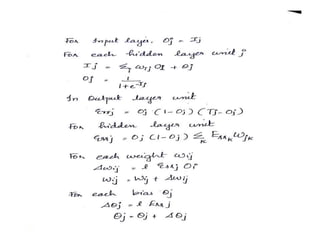 For Input layer, Oj = Ij
For each hidden layer unit j
Ij = Σi ωij Oi + θj
Oj = 1 / 1+e^-Ij
In Output layer unit
Errj = Oj (1-Oj) (Tj-Oj)
For hidden layer unit
Errj = Oj (1-Oj) Σk Errk Wjk
For each weight Wij
Δwij = l Errj Oi
Wij = Wij + Δwij
For each bias θj
Δθj = l Errj
θj = θj + Δθj